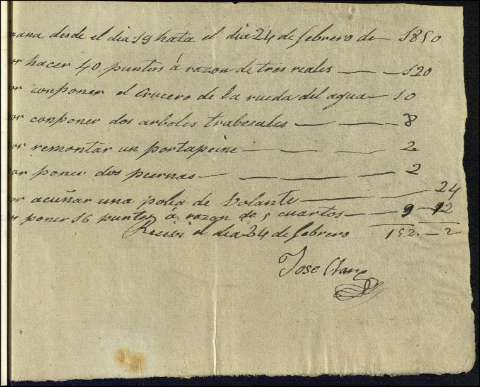 mana desde el dia 19 hata el dia 24 de febrero de — 1850
or hacer 40 puntos á razon de tres reales — 120
or conponer el Crucero de la rueda del agua — 10
or conponer dos arboles trabesales — 8
or remontar un portapeine — 2
or poner dos piernas — 2
or acuñar una polea de bolante — 24
or poner 16 puntos a razon de 5 cuartos — 9 — 12
Recivi el dia 24 de febrero 152 — 2
Jose